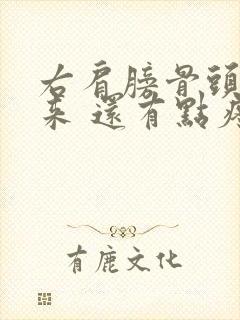 右肩膀骨頭
來 還有點疼
有鹿文化